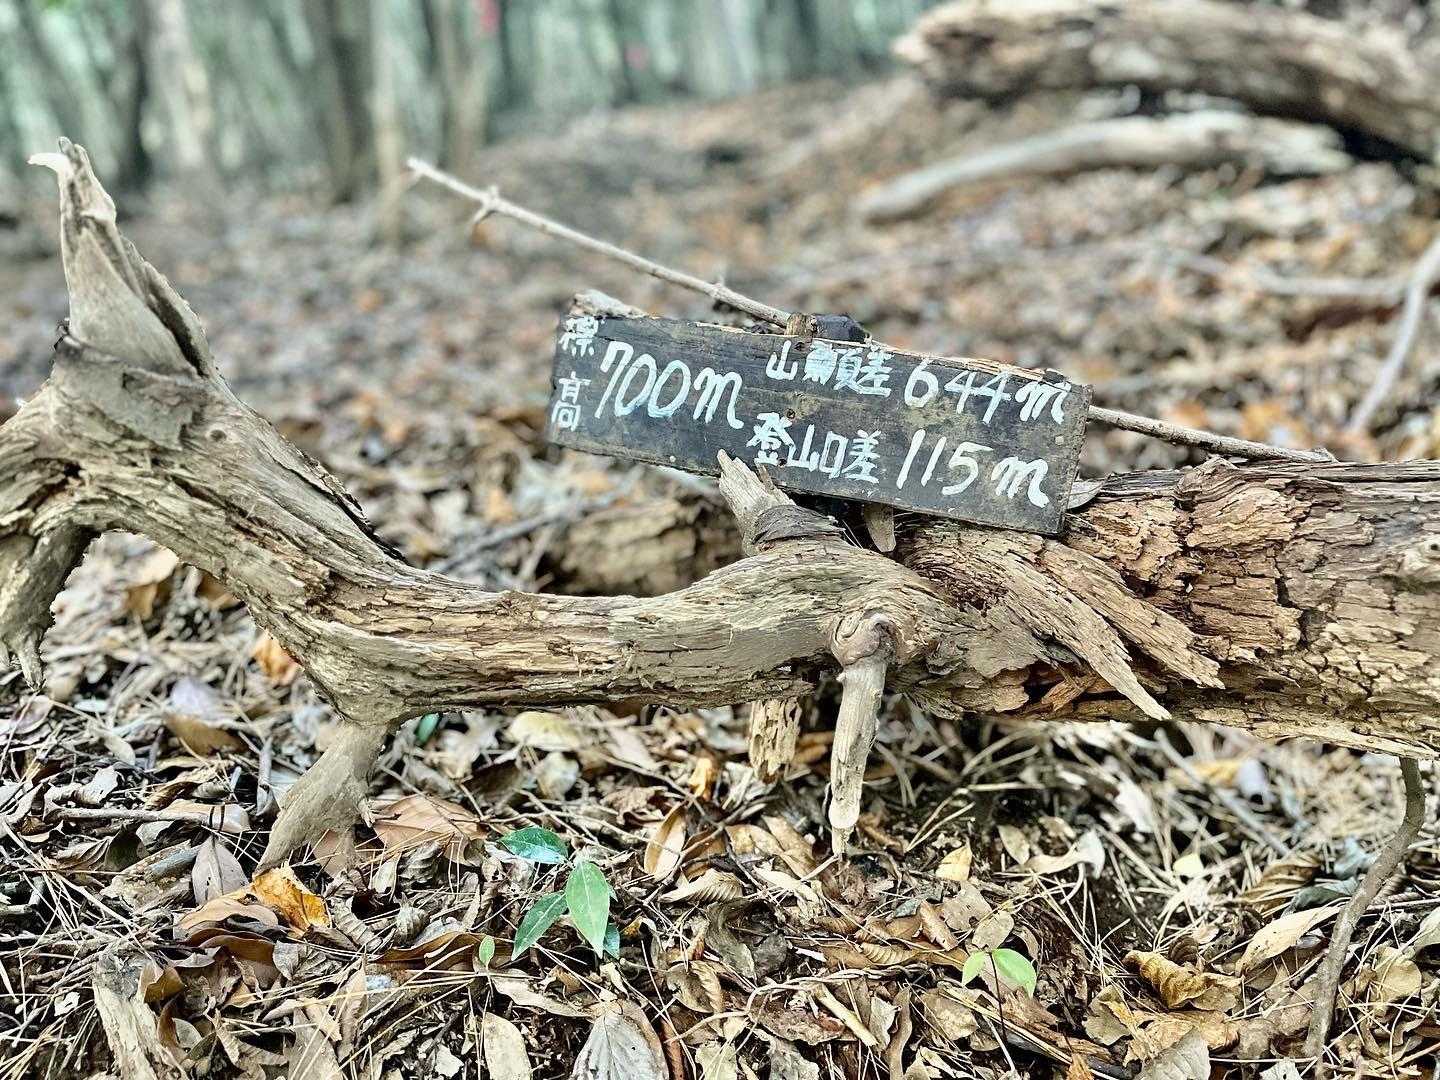 標高 700m
山頂差 644m
登山口差 115m